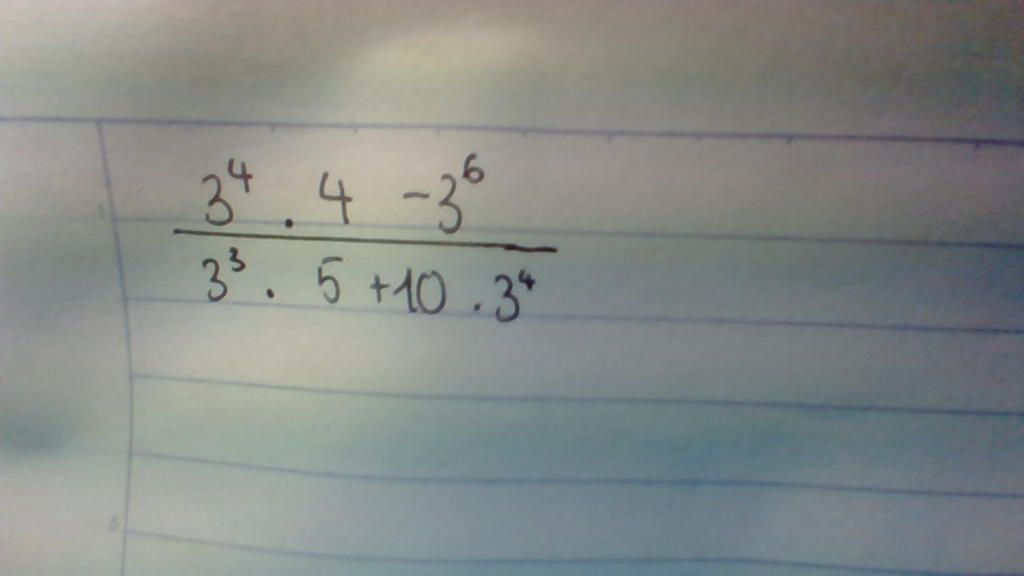 3⁴ . 4 - 3⁶
3³ . 5 + 10 . 3⁴